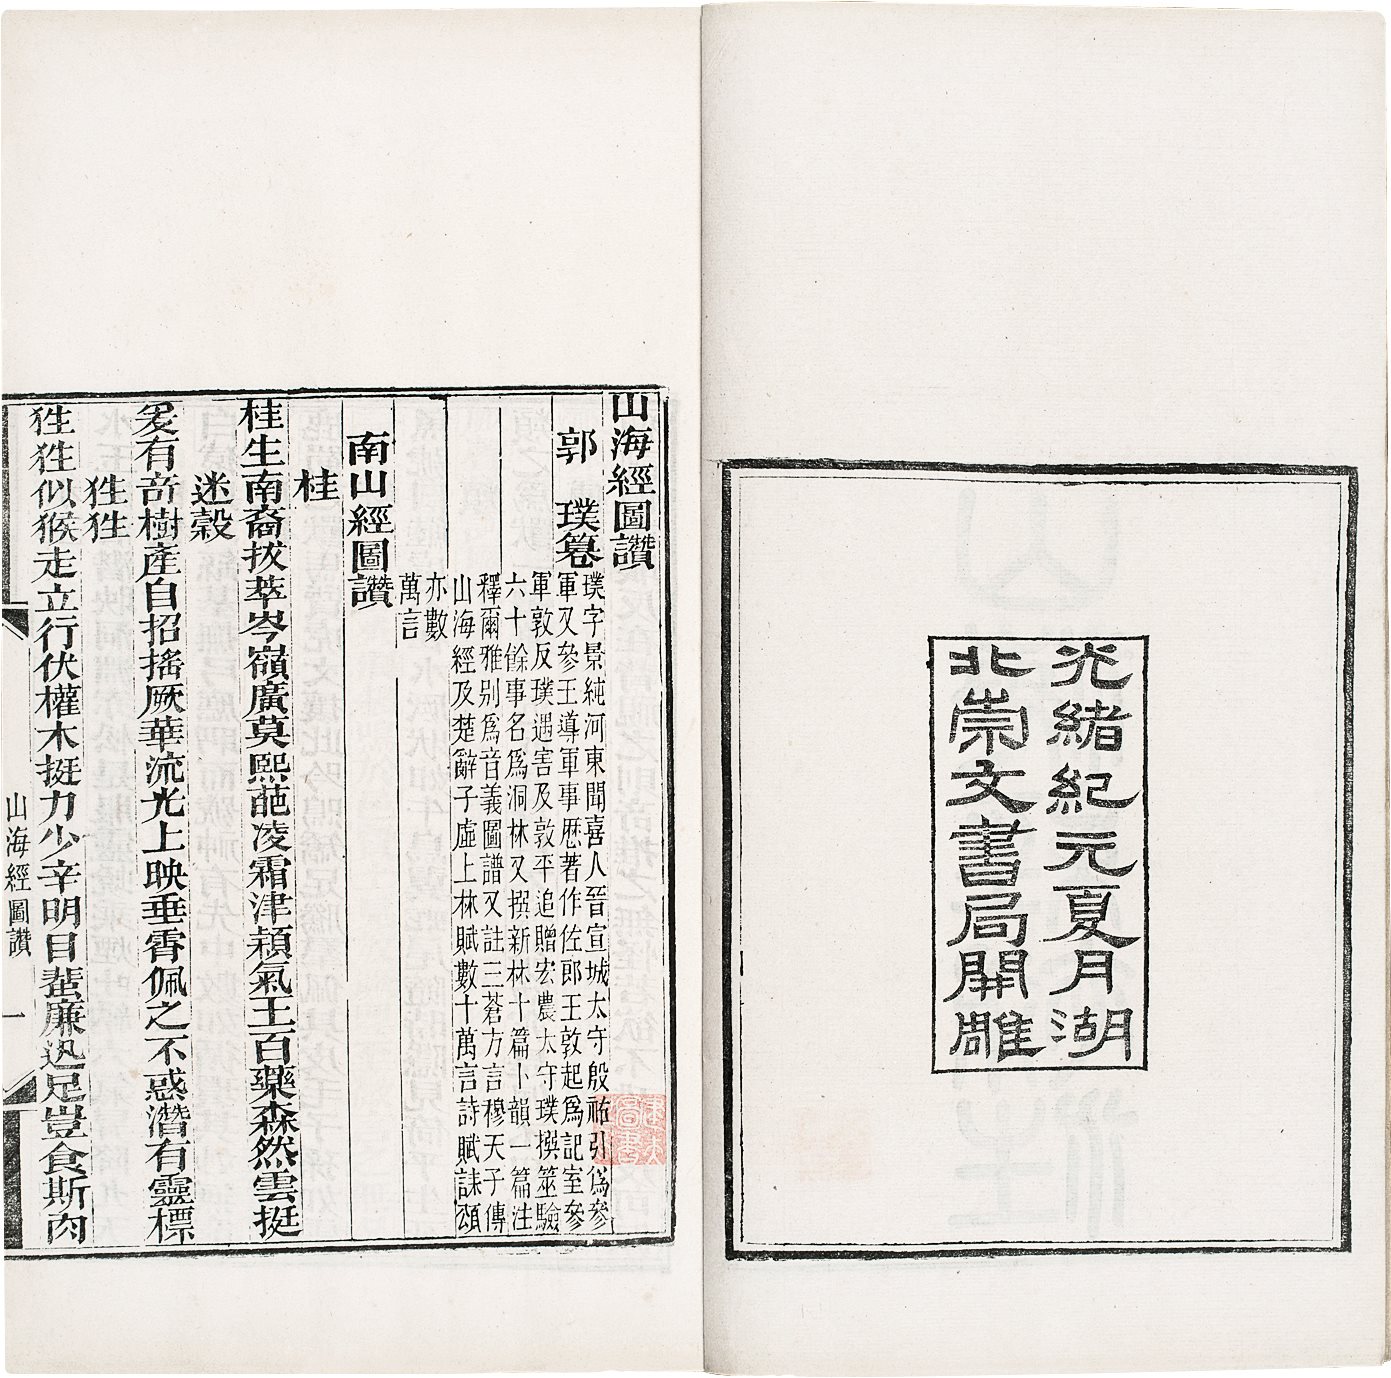 光緒紀元夏月湖
北崇文書局開雕
山海經圖讚
郭璞篹
璞字景純河東聞喜人晉宣城太守殷祐引爲參
軍又參王導軍事歴著作佐郎王敦起爲記室參
軍敦反璞遇害及敦平追贈宏農太守璞撰筮驗
六十餘事名爲洞林又撰新林十篇卜韻一篇注
釋爾雅別爲音義圖譜又註三蒼方言穆天子傳
山海經及楚辭子虛上林賦數十萬言詩賦誄頌
亦數
萬言
南山經圖讚
桂
桂生南裔拔萃岑嶺廣莫熙葩凌霜津穎氣王百藥森然雲挺
迷穀
爰有奇樹產自招搖厥華流光上映垂霄佩之不惑潛有靈標
狌狌
狌狌似猴走立行伏櫂木挺力少辛明目蜚廉迅足豈食斯肉
山海經圖讚
一